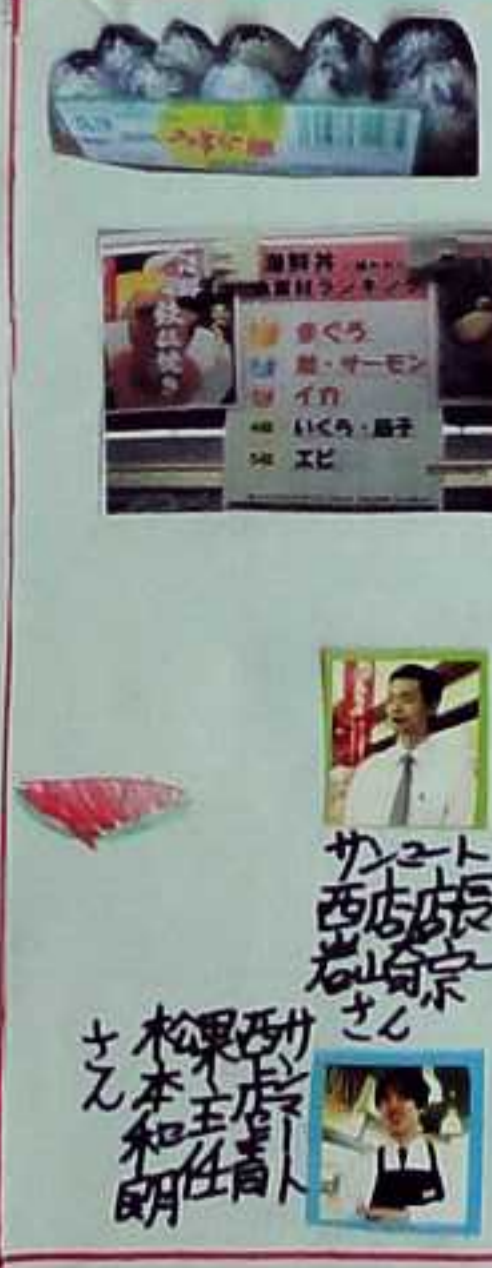 海鮮丼
具材ランキング
まぐろ
・サーモン
イカ
4位 いくら・筋子
5位 エビ
サンマート
西店店長
岩崎宗一
さん
サンマート
西店青
果主任
松本和朗
さん